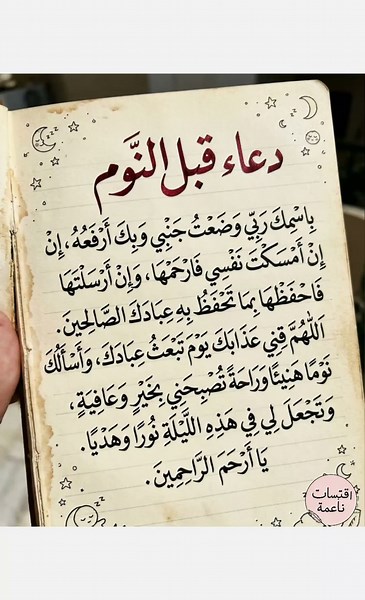 دعاء قبل النَّوم
بِاسْمِكَ رَبِّي وَضَعْتُ جَنْبِي وَبِكَ أَرْفَعُهُ، إِنْ
إِنْ أَمْسَكْتَ نَفْسِي فَارْحَمْهَا، وَإِنْ أَرْسَلْتَهَا
فَاحْفَظْهَا بِمَا تَحْفَظُ بِهِ عِبَادَكَ الصَّالِحِينَ.
اللَّهُمَّ قِنِي عَذَابَكَ يَوْمَ تَبْعَثُ عِبَادَكَ، وَأَسْأَلُكَ
نَوْمًا هَنِيئًا وَرَاحَةً تُصْبِحُنِي بِخَيْرٍ وَعَافِيَةٍ،
وَتَجْعَلَ لِي فِي هَذِهِ اللَّيْلَةِ نُورًا وَهَدْيًا.
يَا أَرْحَمَ الرَّاحِمِينَ.
اقتسات
ناعمة